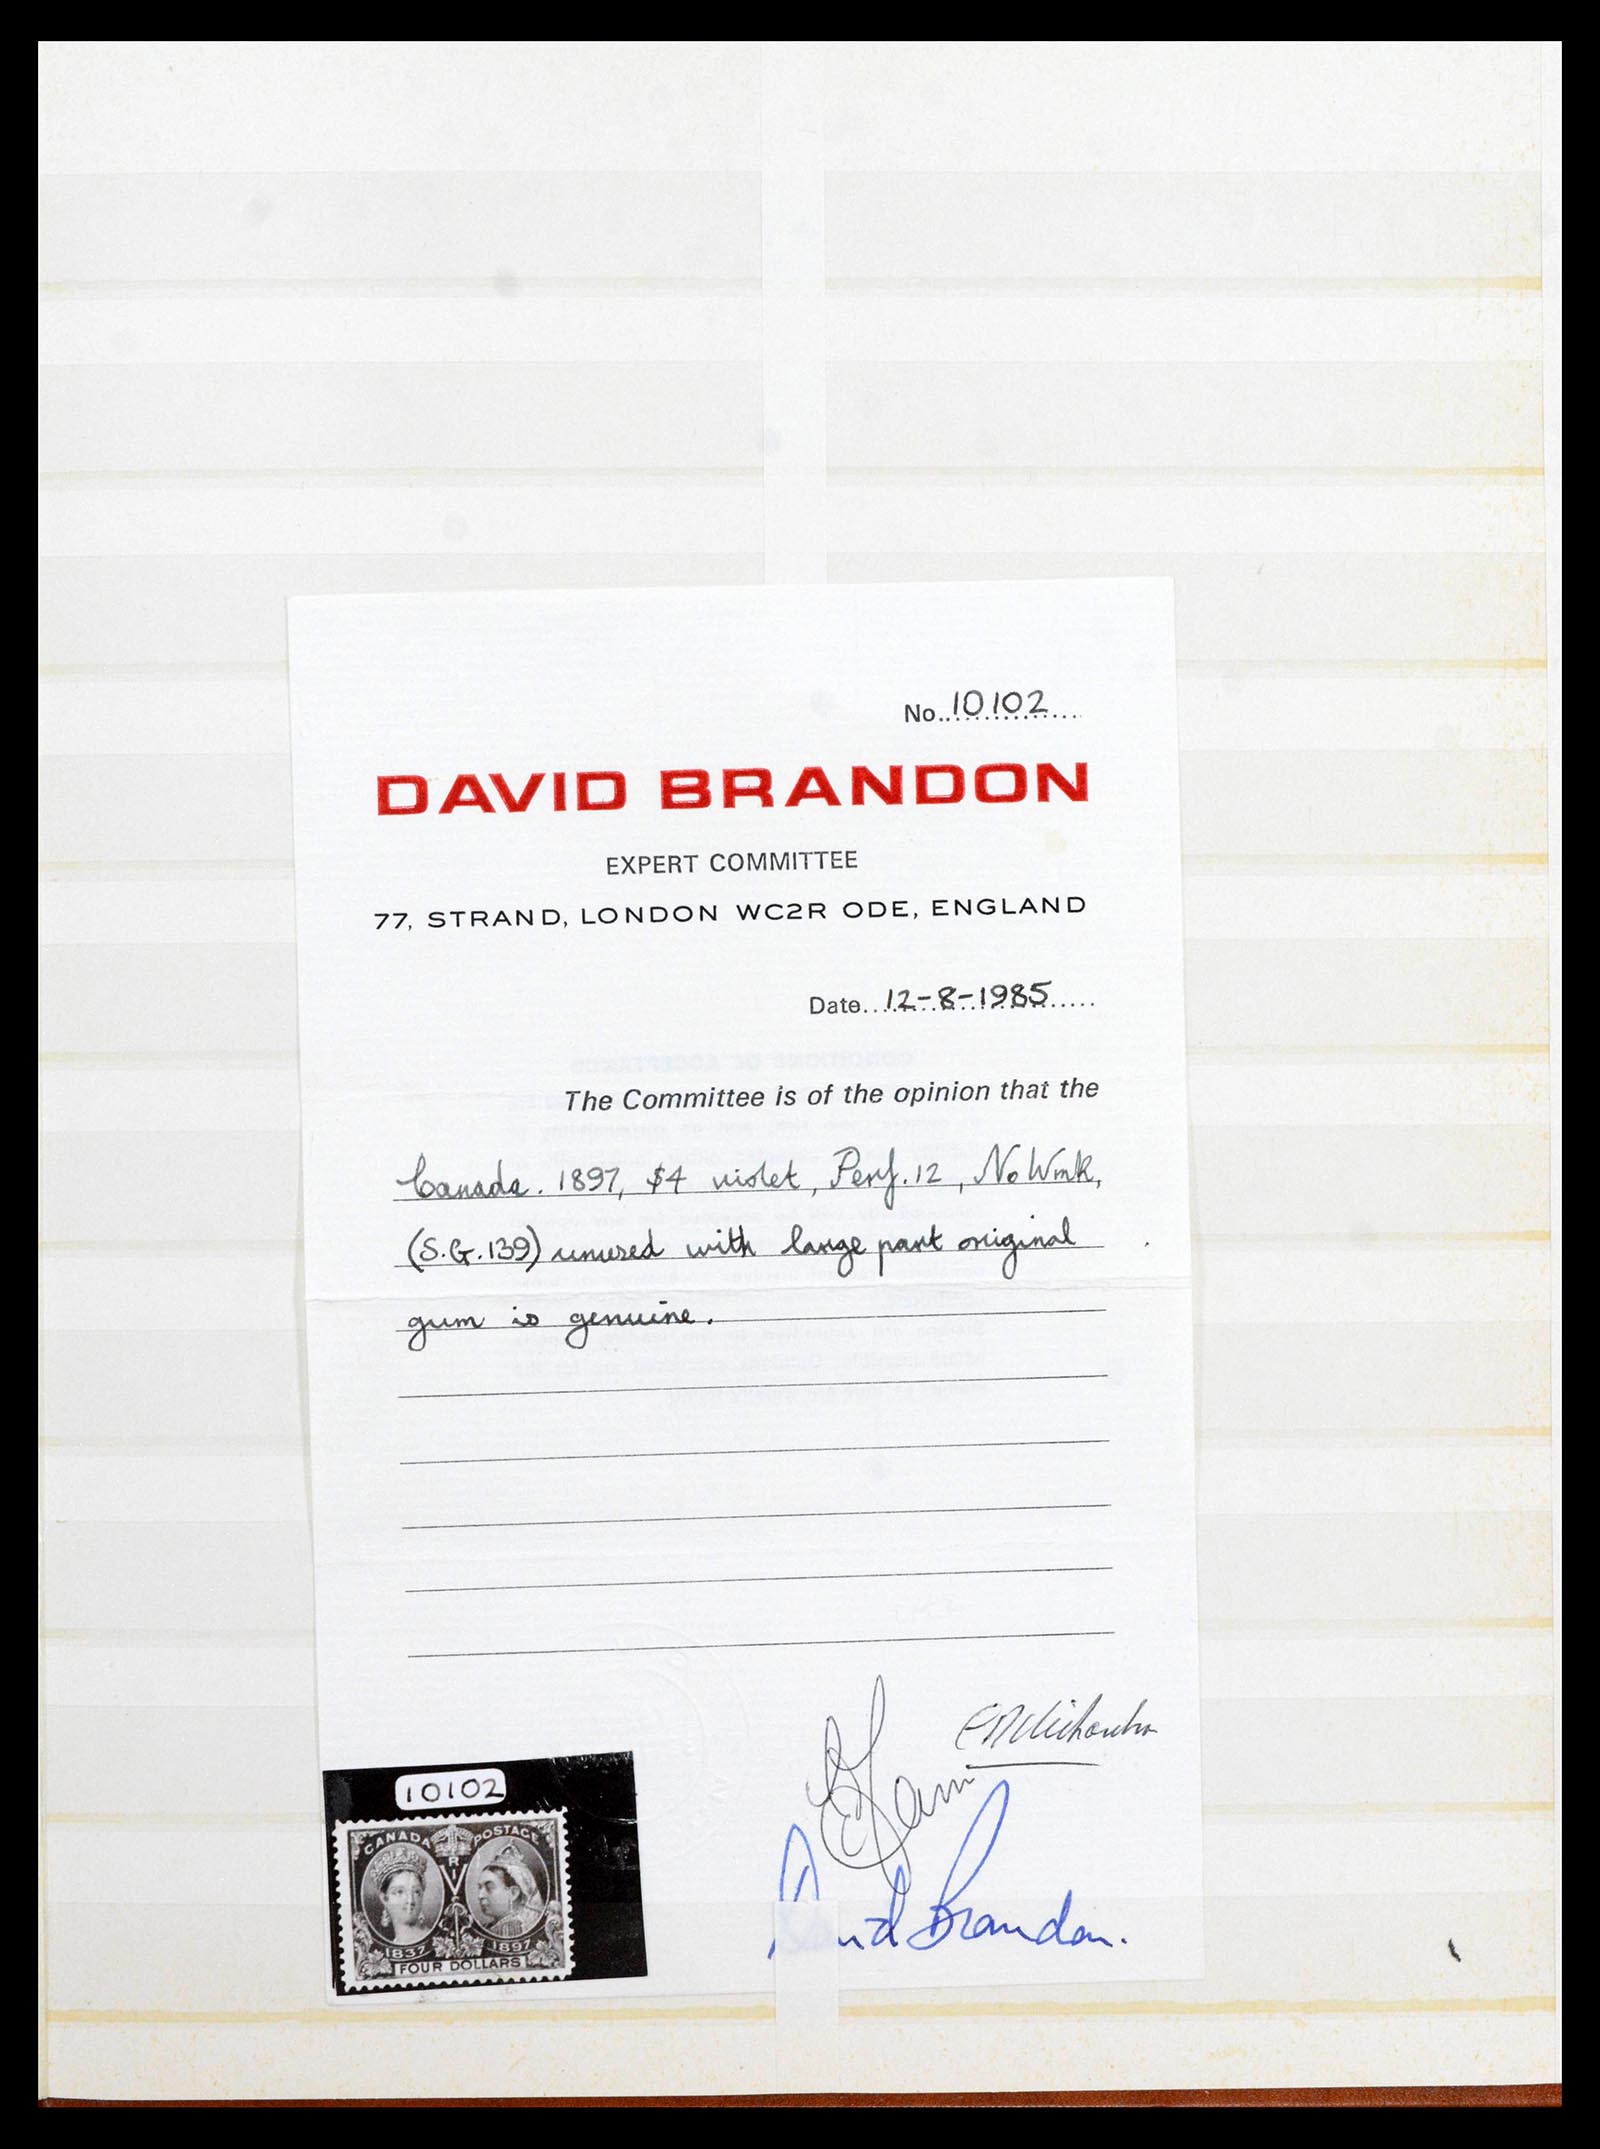 No. 10102
DAVID BRANDON
EXPERT COMMITTEE
77, STRAND, LONDON WC2R ODE, ENGLAND
Date 12-8-1985
The Committee is of the opinion that the
Canada. 1897, $4 violet, Perf. 12, No Wmk,
(S.G. 139) unused with large part original
gum is genuine.
David Brandon.
10102
CANADA POSTAGE
V R I
1837 1897
FOUR DOLLARS